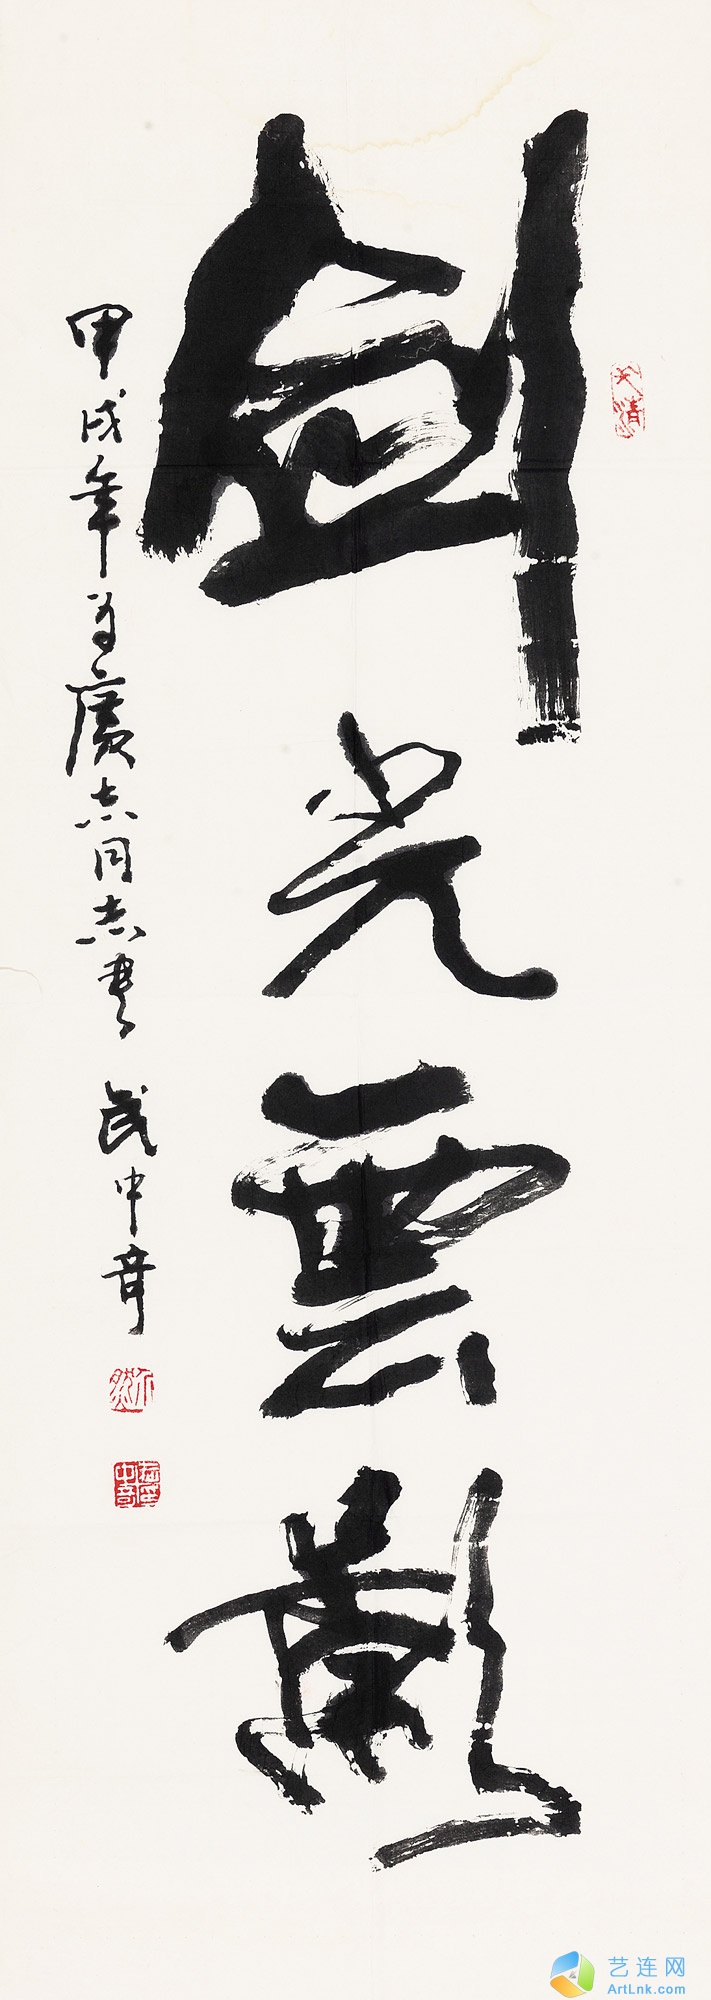 劍光雲影
甲戌年为廣志同志書 武中奇
艺连网
ArtLnk.com